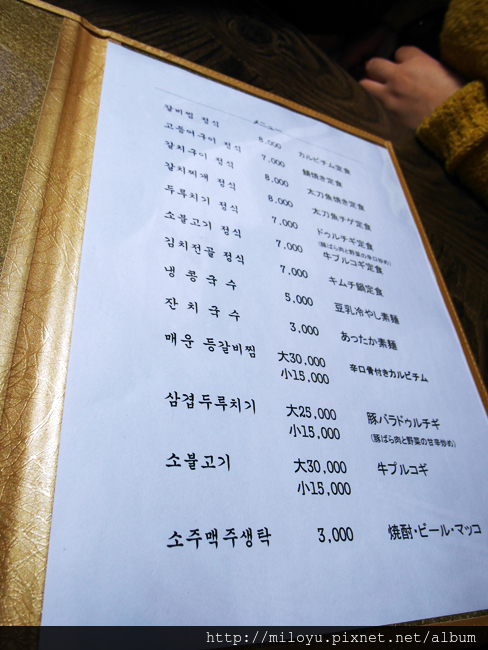 メニュー
갈비찜 정식 8,000 カルビチム定食
고등어구이 정식 7,000 鯖焼き定食
갈치구이 정식 8,000 太刀魚焼き定食
갈치찌개 정식 8,000 太刀魚チゲ定食
두루치기 정식 7,000 ドゥルチギ定食
(豚ばら肉と野菜の辛口炒め)
소불고기 정식 7,000 牛プルコギ定食
김치전골 정식 7,000 キムチ鍋定食
냉콩국수 5,000 豆乳冷やし素麺
잔치국수 3,000 あったか素麺
매운 등갈비찜 大30,000 辛口骨付きカルビチム
小15,000
삼겹두루치기 大25,000 豚バラドゥルチギ
小15,000 (豚ばら肉と野菜の甘辛炒め)
소불고기 大30,000 牛プルコギ
小15,000
소주맥주생탁 3,000 焼酎・ビール・マッコ
http://miloyu.pixnet.net/album